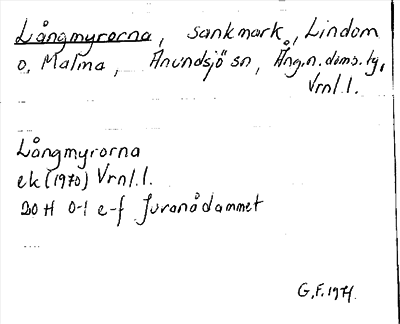 Långmyrorna, sankmark, Lindom
o. Malma, Anundsjö sn, Ång.n. doms. ty,
Vrnl.l.
Långmyrorna
ek (1970) Vrnl.l.
20 H 0-1 e-f Juranådammet
G.F. 1971.